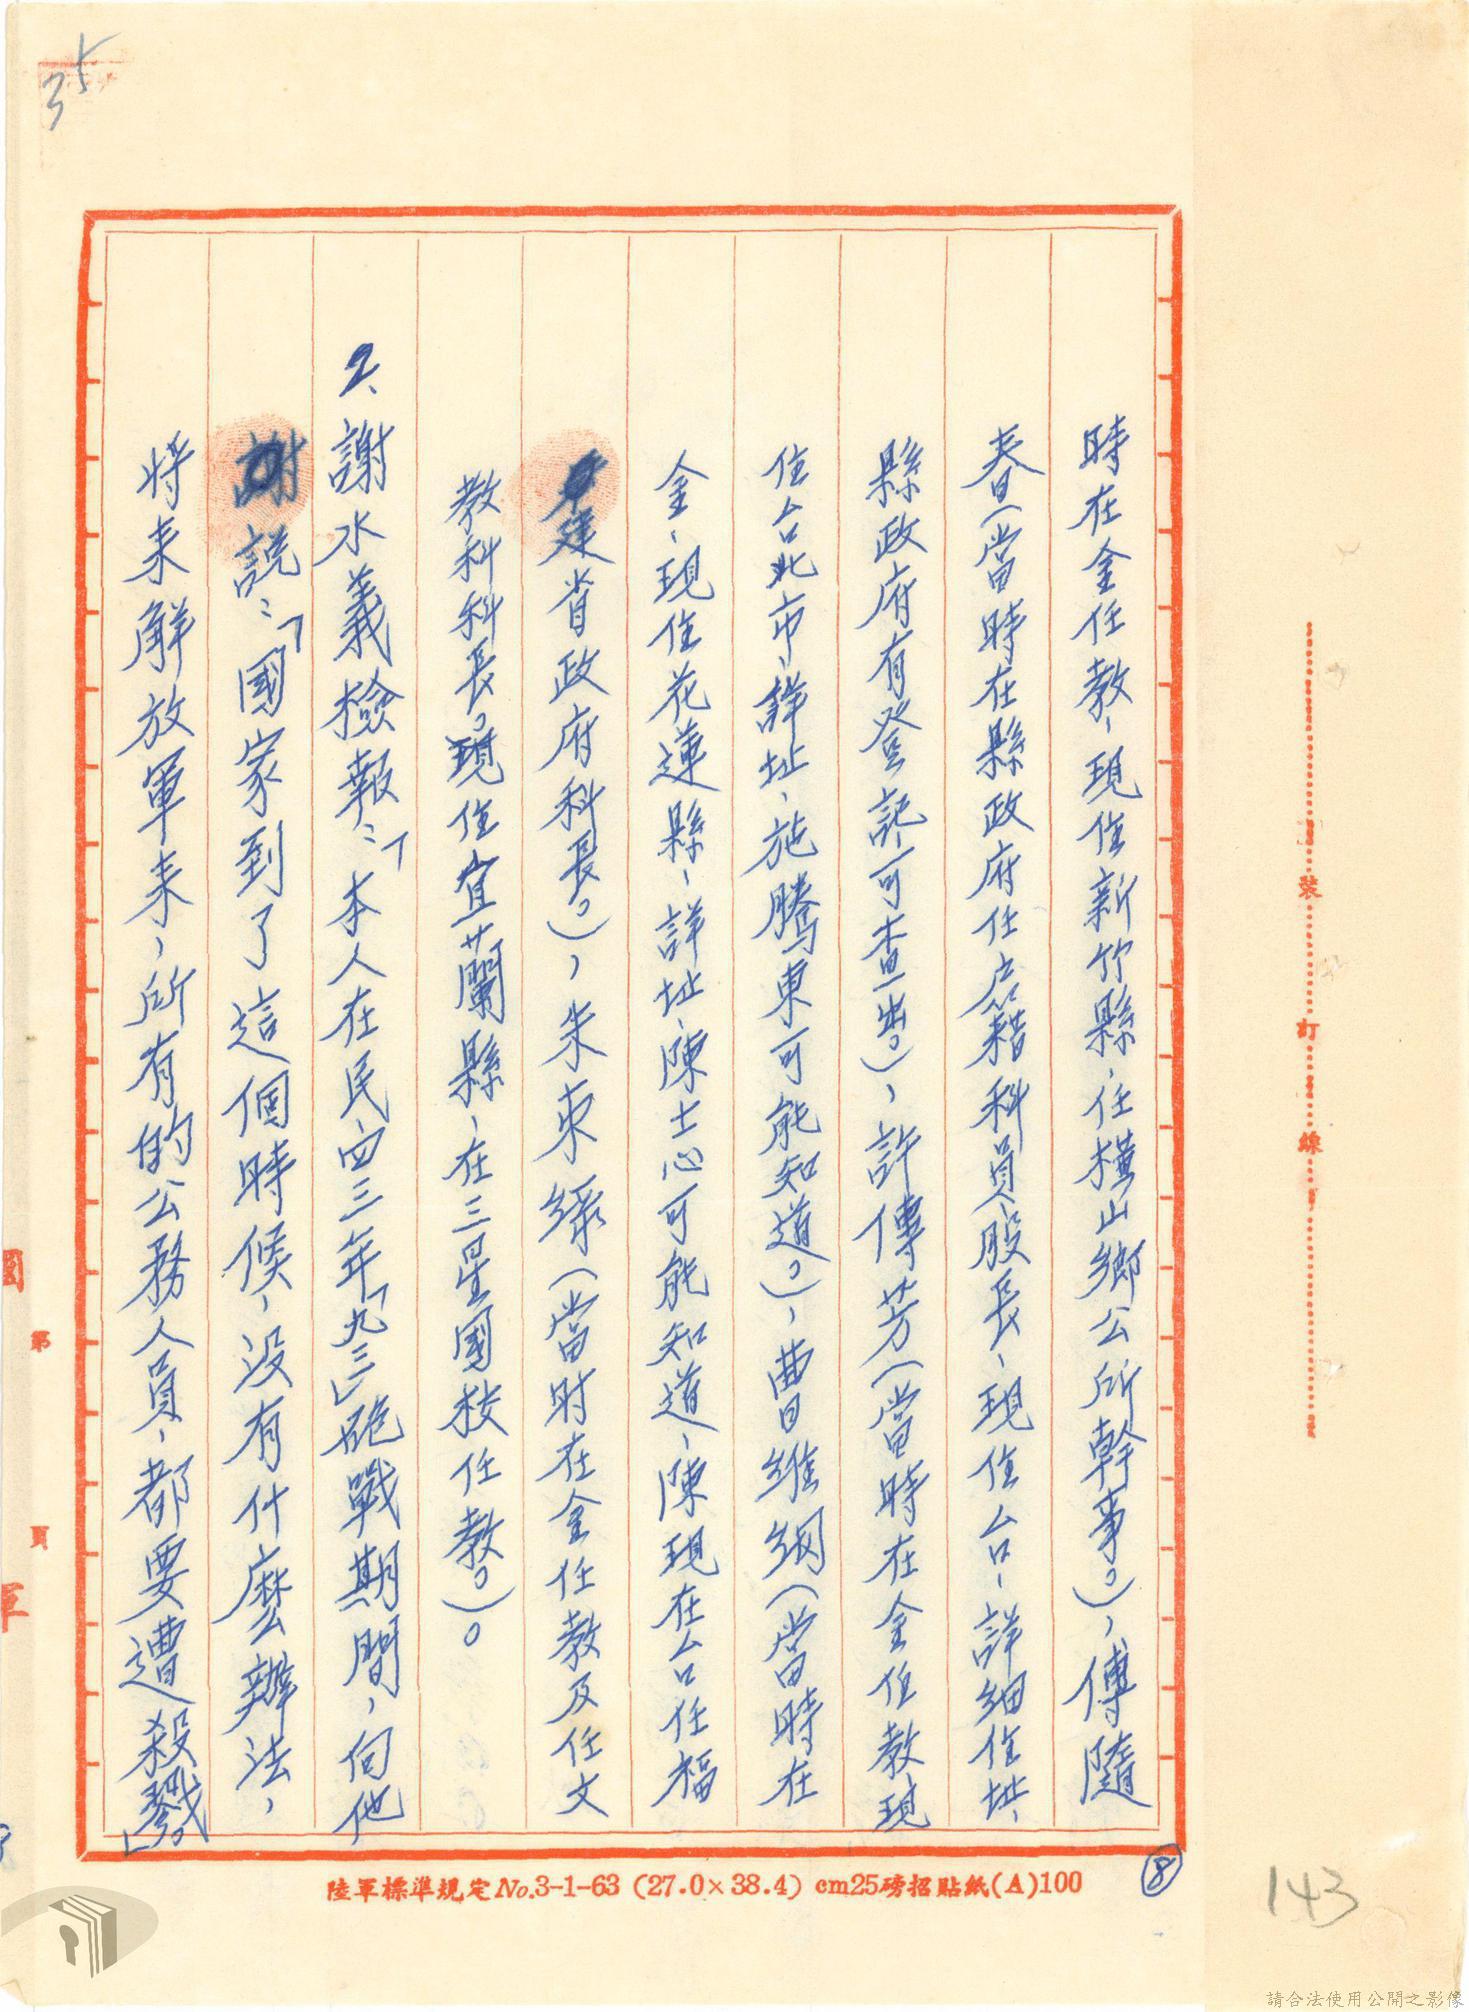 35
時在金任教，現住新竹縣，任橫山鄉公所幹事。），傅隨
春（當時在縣政府任户籍科員、股長、現住台、詳細住址、
縣政府有登記可查出。），許傳芳（當時在金任教現
住台北市，詳址，施騰東可能知道。），曹維綱（當時在
金、現住花蓮縣、詳址，陳士心可能知道，陳現在台任福
建省政府科長。），朱束（當時在金任教及任文
教科科長。現住宜蘭縣、在三星國校任教。）。
2、謝水義檢報：「本人在民四三年「九三」砲戰期間，向他
謝說：「國家到了這個時候，没有什麼辦法，
将来解放軍来，所有的公務人員，都要遭殺戮。」
⑧
陸軍標準規定No.3-1-63 (27.0×38.4) cm25磅招貼紙(A)100
裝 訂 線
第 頁
國 軍
143
請合法使用公開之影像